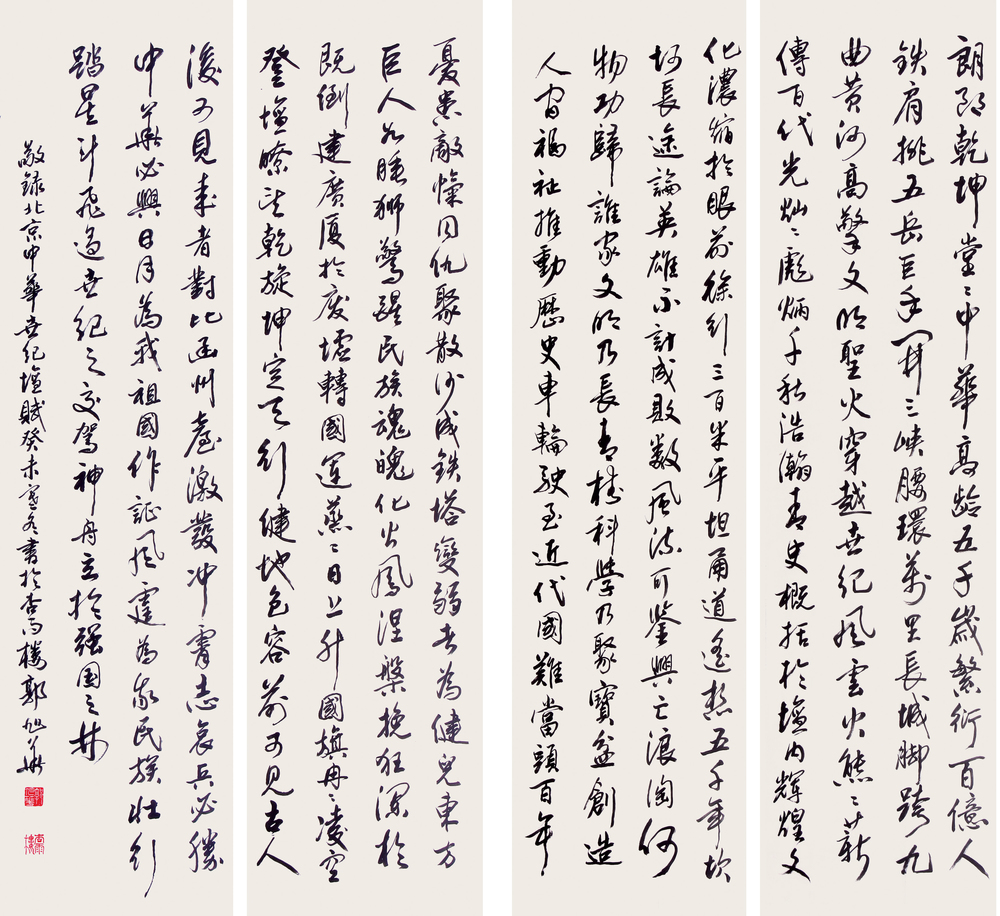 朗朗乾坤堂〻中華高齡五千歲繁衍百億人
鉄肩挑五岳巨手開三峽腰環萬里長城脚跨九
曲黃河高擎文明聖火穿越世紀風雲火熊〻廿新
傳百代光灿〻彪炳千秋浩瀚青史概括於壇内輝煌文
化濃縮於眼前徐行三百米平坦甬道遙想五千年坎
坷長途論英雄不計成敗数風流可鑒興亡浪淘何
物功歸誰家文明乃長青樹科學乃聚寶盆創造
人间福祉推動歷史車輪駛至近代國難當頭百年
憂患敵愾同仇聚散沙成鉄塔變弱者為健兒東方
巨人如睡狮驚醒民族魂魄化火鳳涅槃挽狂瀾於
既倒建廣厦於废墟轉國運蒸〻日上升國旗冉〻凌空
登壇瞭望乾旋坤定天行健地色容前可見古人
後可見来者對比幽州臺激發冲霄志哀兵必勝
中華必興日月為我祖國作証風霆為我民族壯行
踏星斗飛過世紀之交駕神舟立於强国之林
敬録北京中華世纪壇賦癸未寒冬書於杏雨樓郭旭華